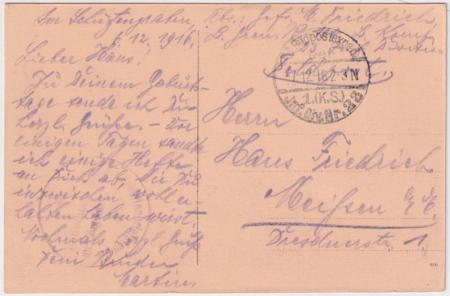 Im Schützengraben,
6.12.1916.
Lieber Hans!
Zu Deinem Geburts-
tage sende ich Dir
herzl. Grüße. - Vor
einigen Tagen sandte
ich einige Hefte
an Dich ab, die Du
inzwischen wohl er-
halten haben wirst.
Nochmals herzl. Grüße
Dein Bruder
Martin.
Abs.: Gefr. M. Friedrich,
Feldpostexped.
12.16. 2-3 N
1. (K.S.)
Inf. Div. Nr. 23
Herrn
Hans Friedrich
Meißen
Dresdnerstr. 1